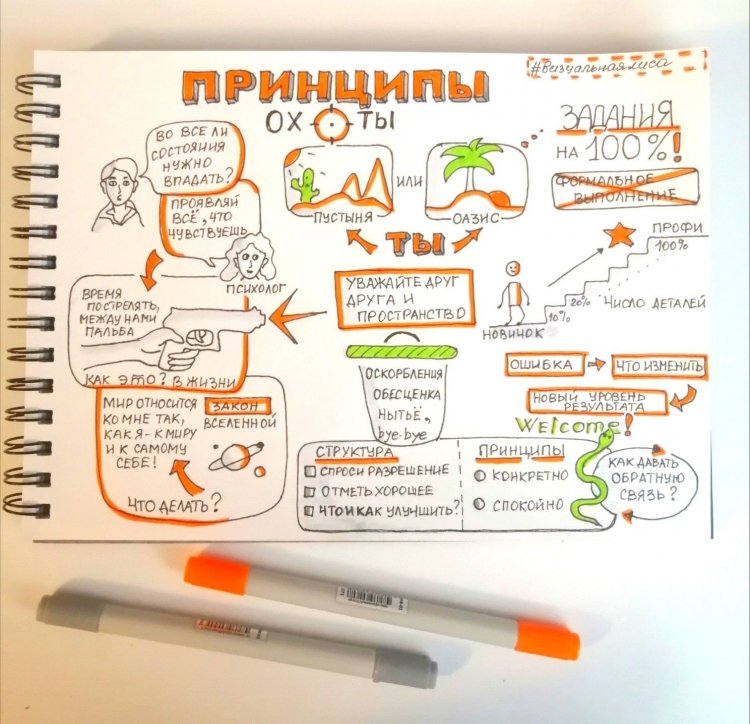 #визуальнаялиса
ПРИНЦИПЫ
ОХОТЫ
ВО ВСЕ ЛИ
СОСТОЯНИЯ
НУЖНО
ВПАДАТЬ?
ПРОЯВЛЯЙ
ВСЁ, ЧТО
ЧУВСТВУЕШЬ
ПСИХОЛОГ
ПУСТЫНЯ
ИЛИ
ОАЗИС
ТЫ
ЗАДАНИЯ
НА 100%!
ФОРМАЛЬНОЕ
ВЫПОЛНЕНИЕ
ПРОФИ
100%
20%
10%
ЧИСЛО ДЕТАЛЕЙ
НОВИЧОК
ВРЕМЯ
ПОСТРЕЛЯТЬ,
МЕЖДУ НАМИ
ПАЛЬБА
КАК ЭТО? В ЖИЗНИ
УВАЖАЙТЕ ДРУГ
ДРУГА И
ПРОСТРАНСТВО
ОСКОРБЛЕНИЯ
ОБЕСЦЕНКА
НЫТЬЁ,
bye-bye
ОШИБКА
ЧТО ИЗМЕНИТЬ
НОВЫЙ УРОВЕНЬ
РЕЗУЛЬТАТА
Welcome!
МИР ОТНОСИТСЯ
КО МНЕ ТАК,
КАК Я - К МИРУ
И К САМОМУ
СЕБЕ!
ЗАКОН
ВСЕЛЕННОЙ
ЧТО ДЕЛАТЬ?
СТРУКТУРА
СПРОСИ РАЗРЕШЕНИЕ
ОТМЕТЬ ХОРОШЕЕ
ЧТО И КАК УЛУЧШИТЬ?
ПРИНЦИПЫ
КОНКРЕТНО
СПОКОЙНО
КАК ДАВАТЬ
ОБРАТНУЮ
СВЯЗЬ?